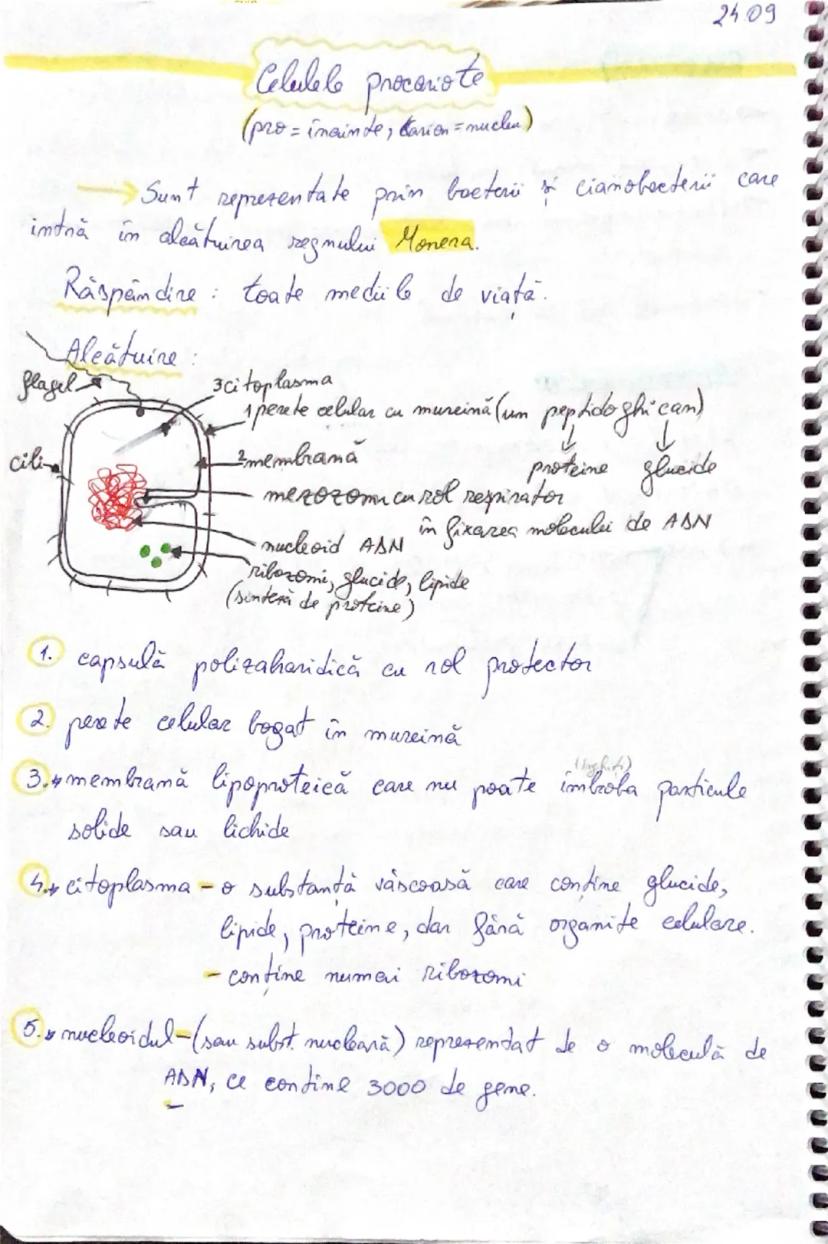 24.09
Celulele procariote
(pro = înainte, carion = nucleu)
→ Sunt reprezentate prin bacterii și cianobacterii care
intră în alcătuirea regnului Monera.
Răspândire: toate mediile de viață.
Alcătuire:
flagel
3 citoplasma
1 perete celular cu mureină (un peptidoglican)
cili
2 membrană
proteine glucide
mezozomi cu rol respirator
în fixarea moleculei de ADN
nucleoid ADN
ribozomi, glucide, lipide
(sinteză de proteine)
1. capsulă polizaharidică cu rol protector
2. perete celular bogat în mureină
(înghiți)
3. membrană lipoproteică care nu poate îmbroba particule
solide sau lichide
4. citoplasma - o substanță vâscoasă care conține glucide,
lipide, proteine, dar fără organite celulare.
- conține numai ribozomi
5. nucleoidul - (sau subst. nucleară) reprezentat de o moleculă de
ADN, ce conține 3000 de gene.